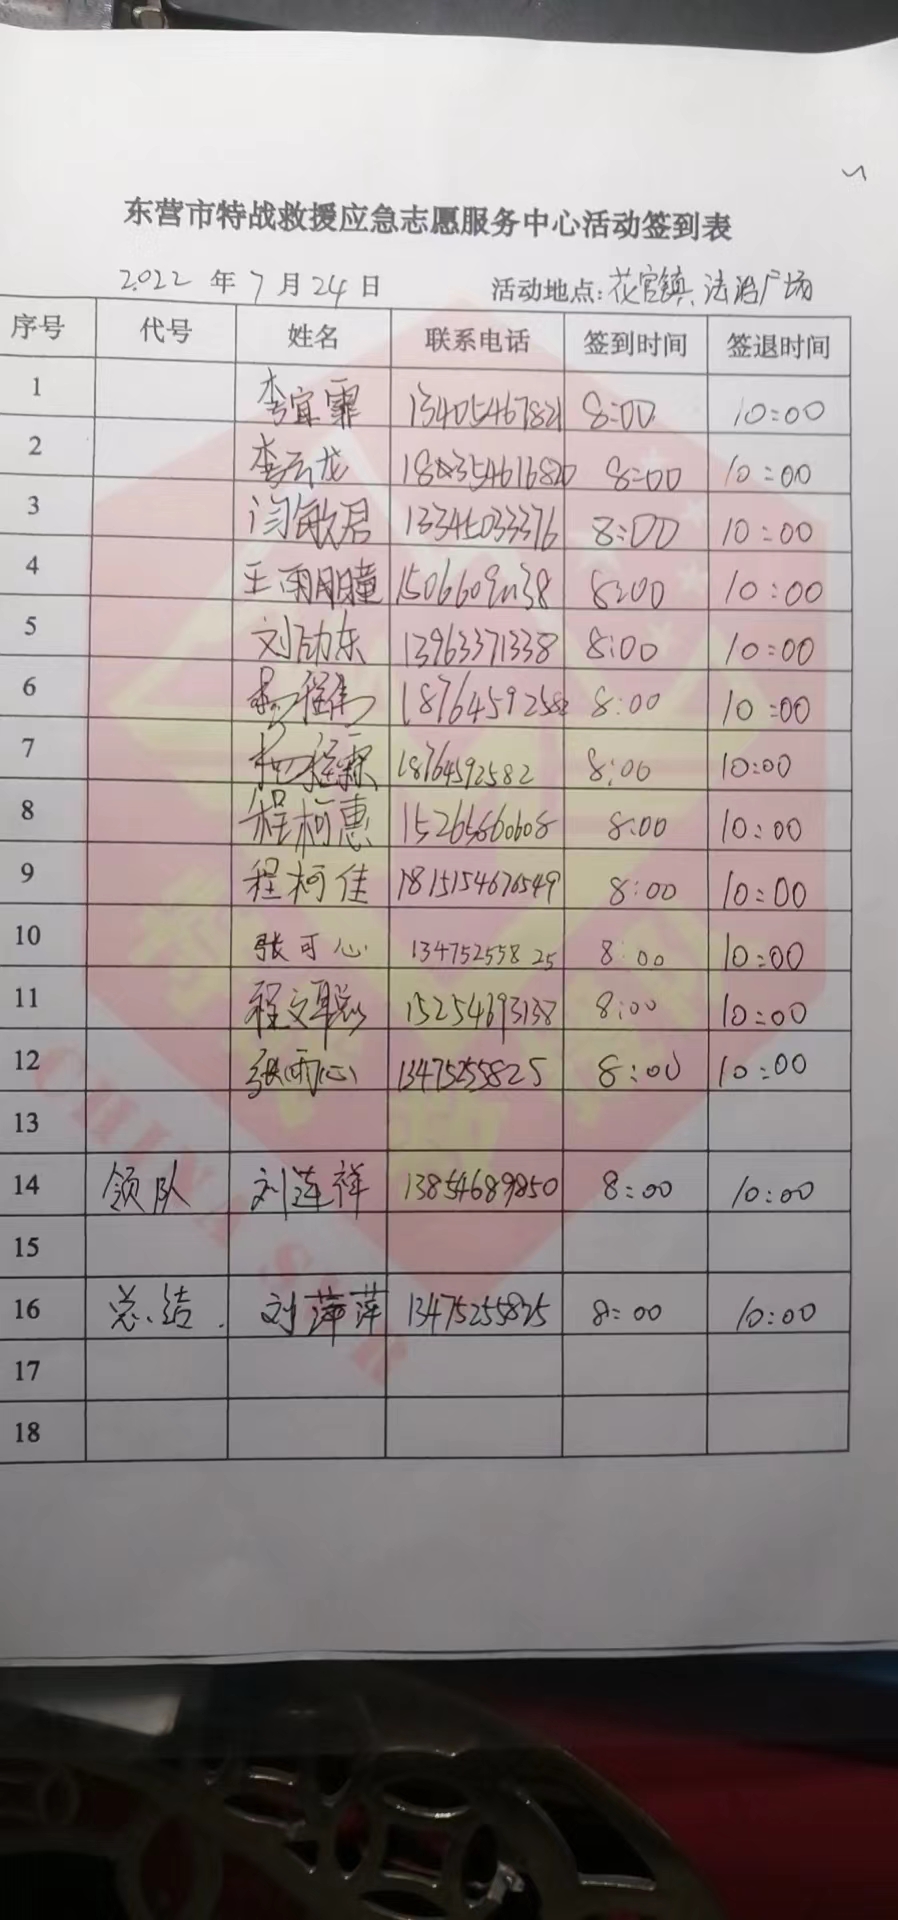 东营市特战救援应急志愿服务中心活动签到表
2022 年 7 月 24 日 活动地点:花官镇、法治广场
序号 代号 姓名 联系电话 签到时间 签退时间
1 李宜霏 13405467821 8:00 10:00
2 李云龙 8:00 10:00
3 闫敏君 13345033376 8:00 10:00
4 王雨朋瞳 8:00 10:00
5 刘劲东 13963371338 8:00 10:00
6 18764592582 8:00 10:00
7 18764592582 8:00 10:00
8 程柯惠 8:00 10:00
9 程柯佳 8:00 10:00
10 张可心 13475255825 8:00 10:00
11 程文聪 15254693138 8:00 10:00
12 张雨心 13475255825 8:00 10:00
13
14 领队 刘莲祥 13854689850 8:00 10:00
15
16 总结. 刘萍萍 13475255825 8:00 10:00
17
18
CHINA SSR